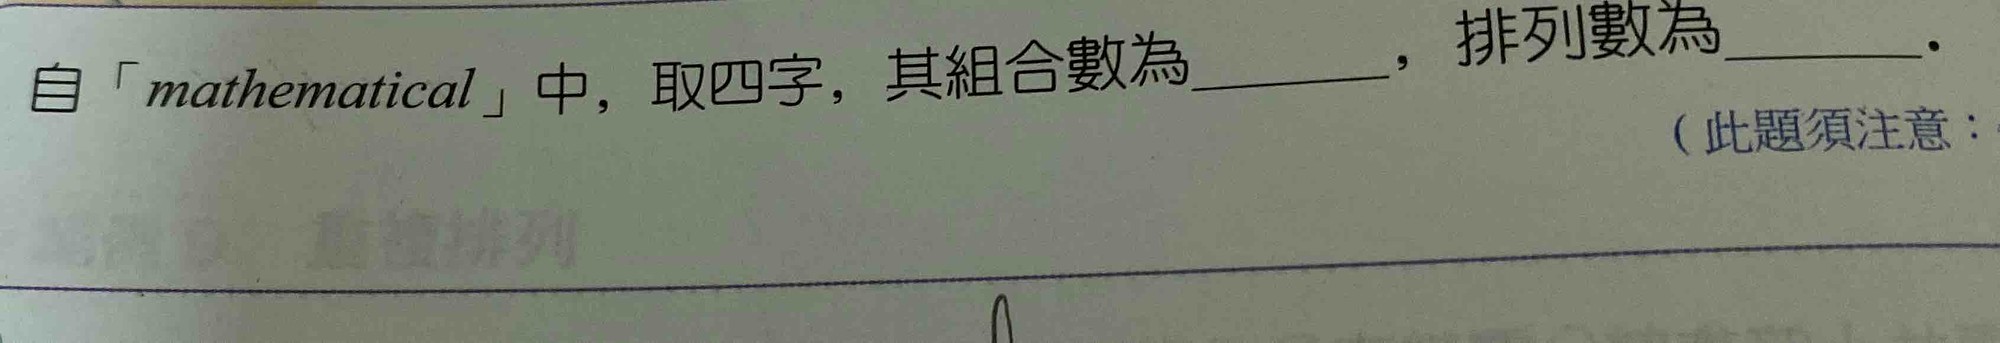 自「mathematical」中，取四字，其組合數為______，排列數為______．
（此題須注意：
重複排列